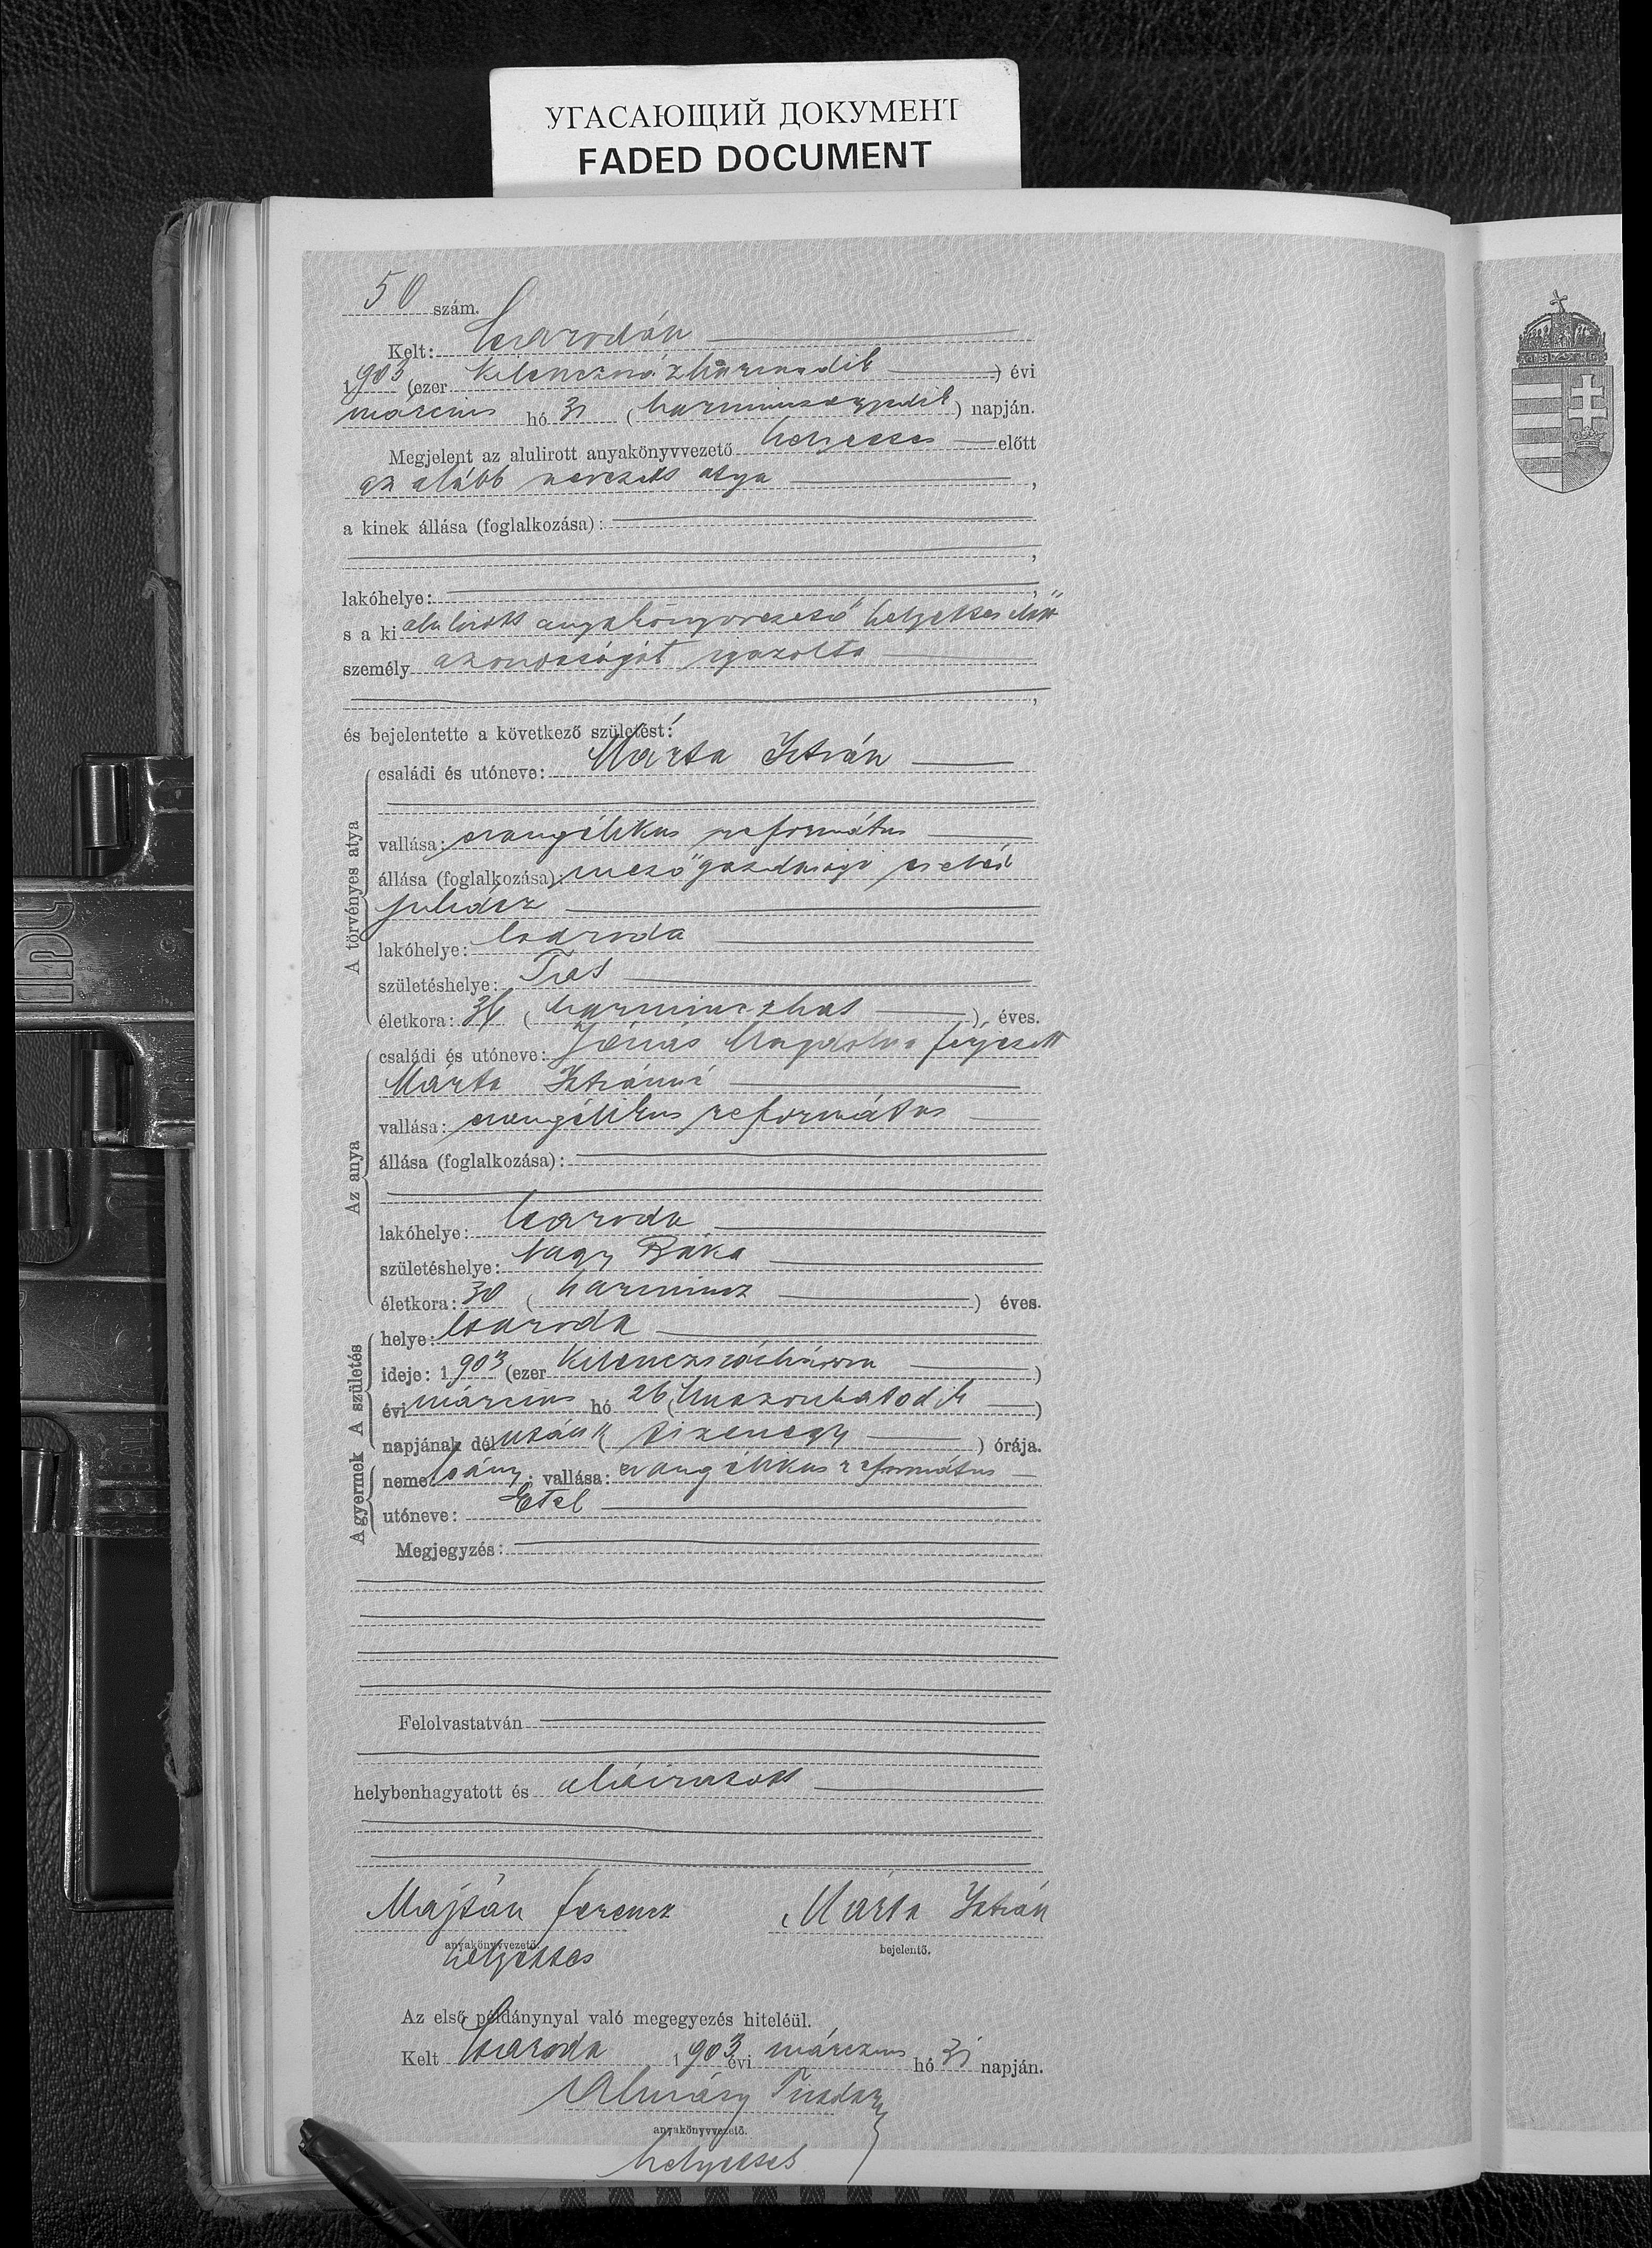 УГАСАЮЩИЙ ДОКУМЕНТ
FADED DOCUMENT
50 szám.
Kelt: Csarodán
1903 (ezer kilenczszázharmadik) évi
márczius hó 31 (harminczegyedik) napján.
Megjelent az alulirott anyakönyvvezető helyettes előtt
az alább nevezett atya,
a kinek állása (foglalkozása):
lakóhelye:
s a ki alulirott anyakönyvvezető helyettes előtt
személy azonosságát igazolta
és bejelentette a következő születést:
A törvényes atya
családi és utóneve: Márta István
vallása: evangélikus református
állása (foglalkozása): mezőgazdasági cseléd
juhász
lakóhelye: Csaroda
születéshelye:
életkora: 36 (harminczhat) éves.
Az anya
családi és utóneve: Jónás Magdolna férjezett
Márta Istvánné
vallása: evangélikus református
állása (foglalkozása):
lakóhelye: Csaroda
születéshelye: Nagy Báka
életkora: 30 (harmincz) éves.
A születés
helye: Csaroda
ideje: 1903 (ezer kilenczszázhárom)
évi márczius hó 26 (huszonhatodik)
napjának délután 11 (tizenegy) órája.
A gyermek
neme: leány; vallása: evangélikus református
utóneve: Etel
Megjegyzés:
Felolvastatván
helybenhagyatott és aláiratott
Majtán Ferencz Márta István
anyakönyvvezető. bejelentő.
helyettes
Az első példánynyal való megegyezés hiteléül.
Kelt Csaroda 1903 évi márczius hó 31 napján.
Almásy
anyakönyvvezető.
helyettes